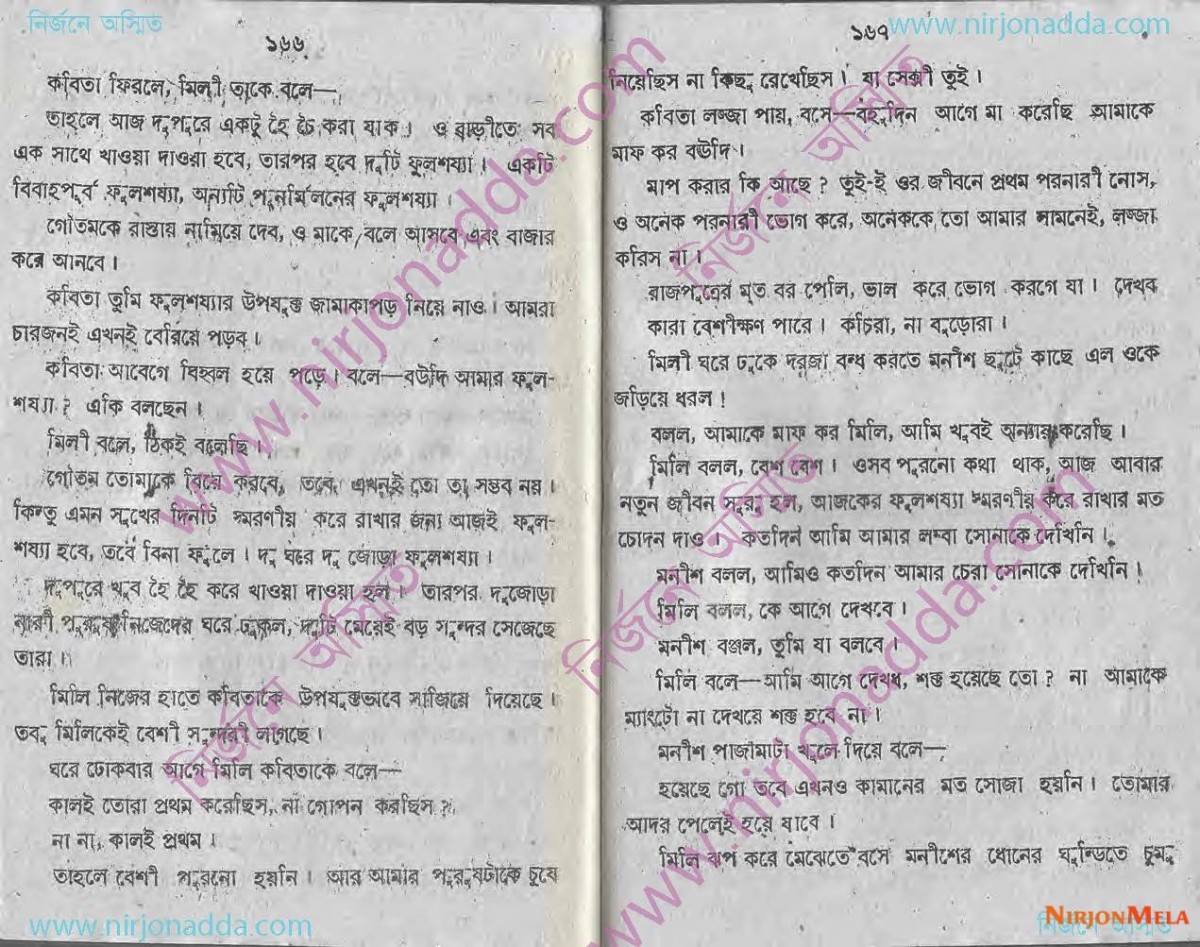 নির্জনে অস্মিত
www.nirjonadda.com
১৬৬
কবিতা ফিরলে, মিলী তাকে বলে—
তাহলে আজ দুপুরে একটু হৈ চৈ করা যাক। ও বাড়ীতে সব
এক সাথে খাওয়া দাওয়া হবে, তারপর হবে দুটি ফুলশয্যা। একটি
বিবাহপূর্ব ফুলশয্যা, অন্যটি পুনর্মিলনের ফুলশয্যা।
গৌতমকে রাস্তায় নামিয়ে দেব, ও মাকে বলে আসবে এবং বাজার
করে আনবে।
কবিতা তুমি ফুলশয্যার উপযুক্ত জামাকাপড় নিয়ে নাও। আমরা
চারজনই এখনই বেরিয়ে পড়ব।
কবিতা আবেগে বিহ্বল হয়ে পড়ে। বলে—বউদি আমার ফুল-
শয্যা? একি বলছেন।
মিলী বলে, ঠিকই বলেছি।
গৌতম তোমাকে বিয়ে করবে, তবে এখনই তো তা সম্ভব নয়।
কিন্তু এমন সুখের দিনটি স্মরণীয় করে রাখার জন্য আজই ফুল-
শয্যা হবে, তবে বিনা ফুলে। দু ঘরে দু জোড়া ফুলশয্যা।
দুপুরে খুব হৈ হৈ করে খাওয়া দাওয়া হল। তারপর দুজোড়া
নারী পুরুষ নিজেদের ঘরে ঢুকল, দুটি মেয়েই বড় সুন্দর সেজেছে
তারা।
মিলি নিজের হাতে কবিতাকে উপযুক্তভাবে সাজিয়ে দিয়েছে।
তবু মিলিকেই বেশী সুন্দরী লাগছে।
ঘরে ঢোকবার আগে মিলি কবিতাকে বলে—
কালই তোরা প্রথম করেছিস, না গোপন করছিস?
না না, কালই প্রথম।
তাহলে বেশী পুরনো হয়নি। আর আমার পুরুষটাকে চুষে
১৬৭
নিয়েছিস না কিছু রেখেছিস। যা সেক্সী তুই।
কবিতা লজ্জা পায়, বসে—বহুদিন আগে মা করেছি আমাকে
মাফ কর বউদি।
মাপ করার কি আছে? তুই-ই ওর জীবনে প্রথম পরনারী নোস,
ও অনেক পরনারী ভোগ করে, অনেককে তো আমার সামনেই, লজ্জা
করিস না।
রাজপুত্রের মত বর পেলি, ভাল করে ভোগ করগে যা। দেখব
কারা বেশীক্ষণ পারে। কচিরা, না বুড়োরা।
মিলী ঘরে ঢুকে দরজা বন্ধ করতে মনীশ ছুটে কাছে এল ওকে
জড়িয়ে ধরল!
বলল, আমাকে মাফ কর মিলি, আমি খুবই অন্যায় করেছি।
মিলি বলল, বেশ বেশ। ওসব পুরনো কথা থাক, আজ আবার
নতুন জীবন সুরু হল, আজকের ফুলশয্যা স্মরণীয় করে রাখার মত
চোদন দাও। কতদিন আমি আমার লম্বা সোনাকে দেখিনি।
মনীশ বলল, আমিও কতদিন আমার চেরা সোনাকে দেখিনি!
মিলি বলল, কে আগে দেখবে।
মনীশ বলল, তুমি যা বলবে।
মিলি বলে—আমি আগে দেখব, শক্ত হয়েছে তো? না আমাকে
ন্যাংটো না দেখয়ে শক্ত হবে না।
মনীশ পাজামাটা খুলে দিয়ে বলে—
হয়েছে গো তবে এখনও কামানের মত সোজা হয়নি। তোমার
আদর পেলেই হয়ে যাবে।
মিলি ঝপ করে মেঝেতে বসে মনীশের ধোনের মুন্ডিতে চুমু
www.nirjonadda.com
নির্জনে অস্মিত
www.nirjonadda.com
নির্জনে অস্মিত
www.nirjonadda.com
নির্জনে অস্মিত
NIRJONMELA